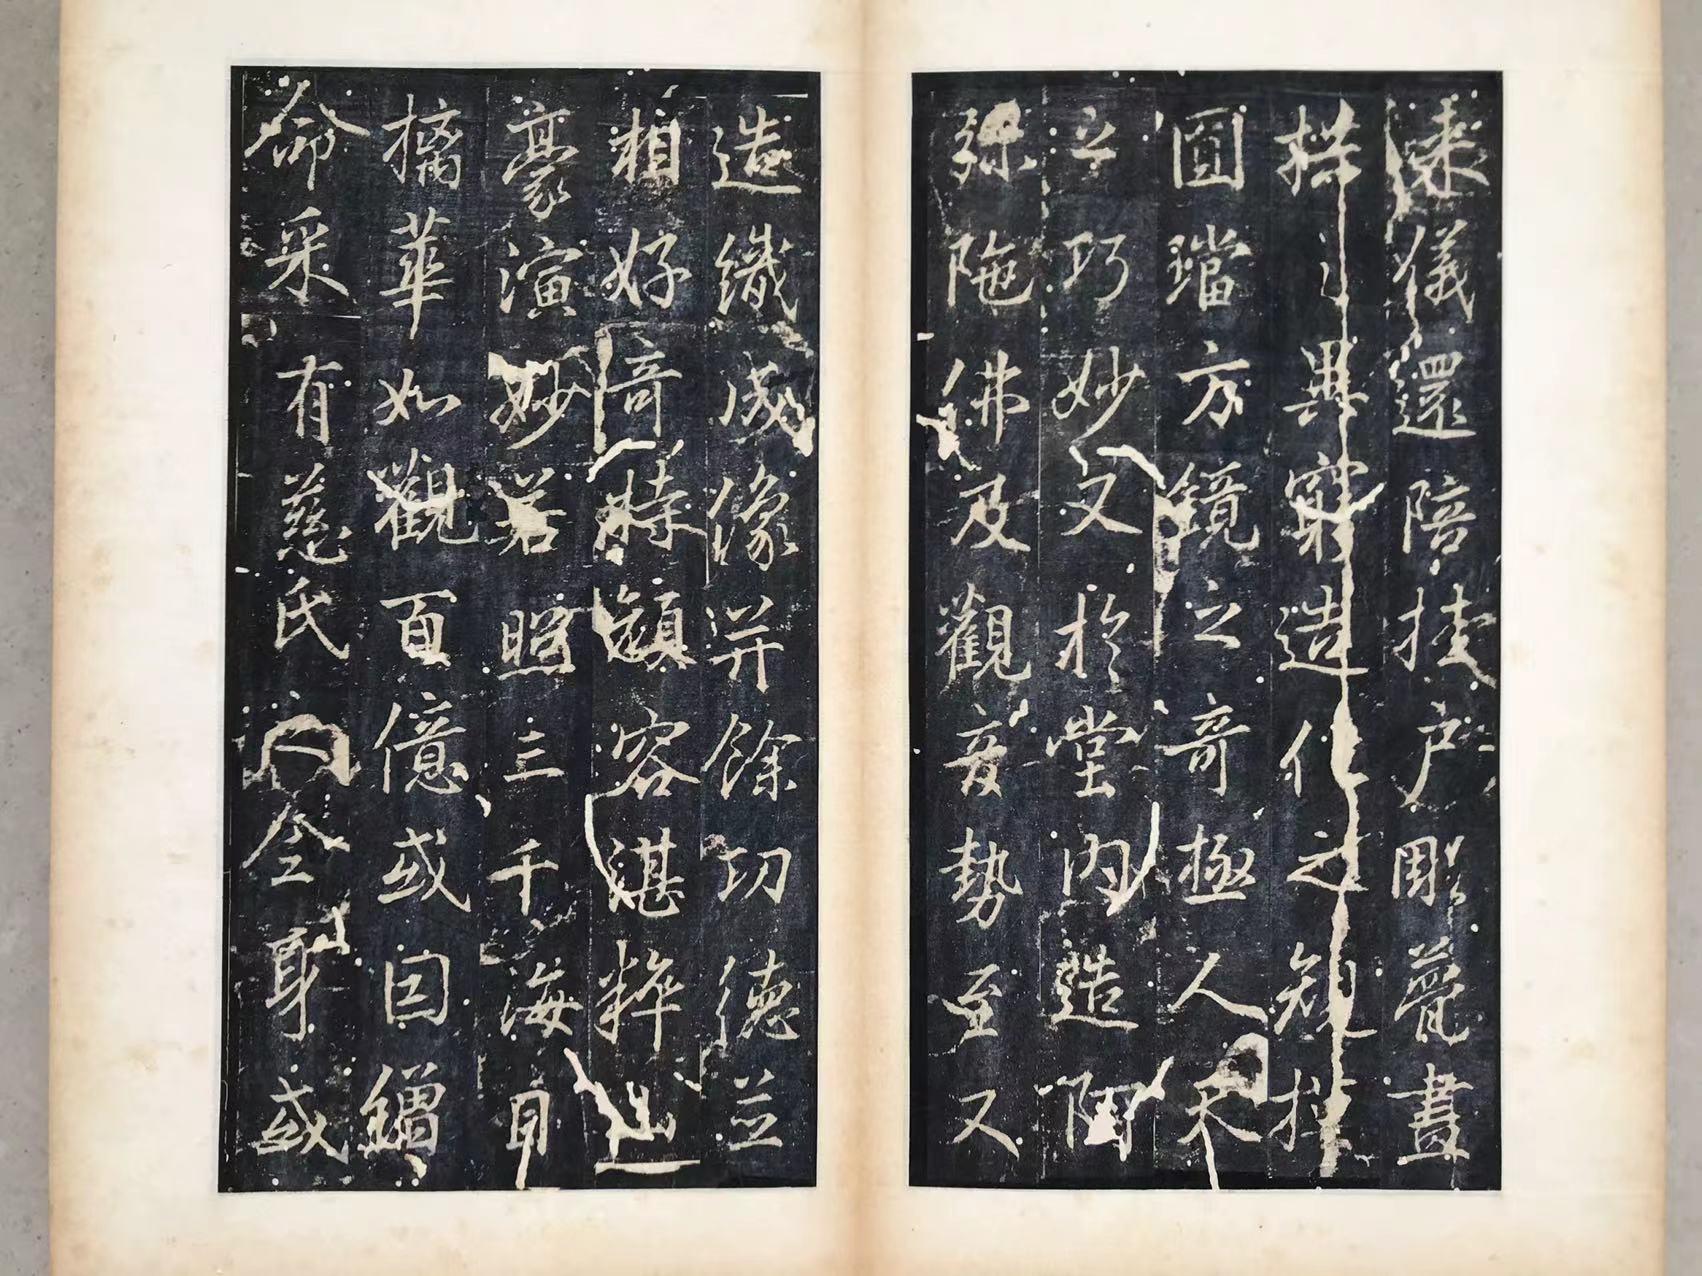 来儀還陪挂戶彫甍畫
栱之異窮造化之規摸
圓璫方鏡之奇極人天
之巧妙又於堂內造阿
弥陁佛及觀音勢至又
造織成像并餘功德並
相好奇特顏容湛粹山
豪演妙若照三千海目
摛華如觀百億或因繒
命采有慈氏之全身或